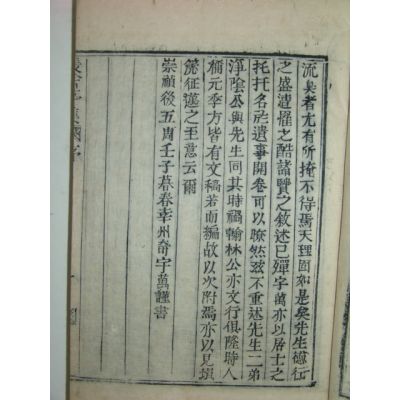 流矣者尤有所掩不得焉天理固如是矣先生德行
之盛遭罹之酷諸賢之敘述已殫宇萬亦以居士之
托托名於遺事開卷可以瞭然玆不重述先生二弟
陰公與先生同其時禍翰林公亦文行俱隆時人
稱元季方皆有文稿若而編故以次附焉亦以見塤
篪征邁之至意云爾
崇禎後五周壬子暮春幸州奇宇萬謹書